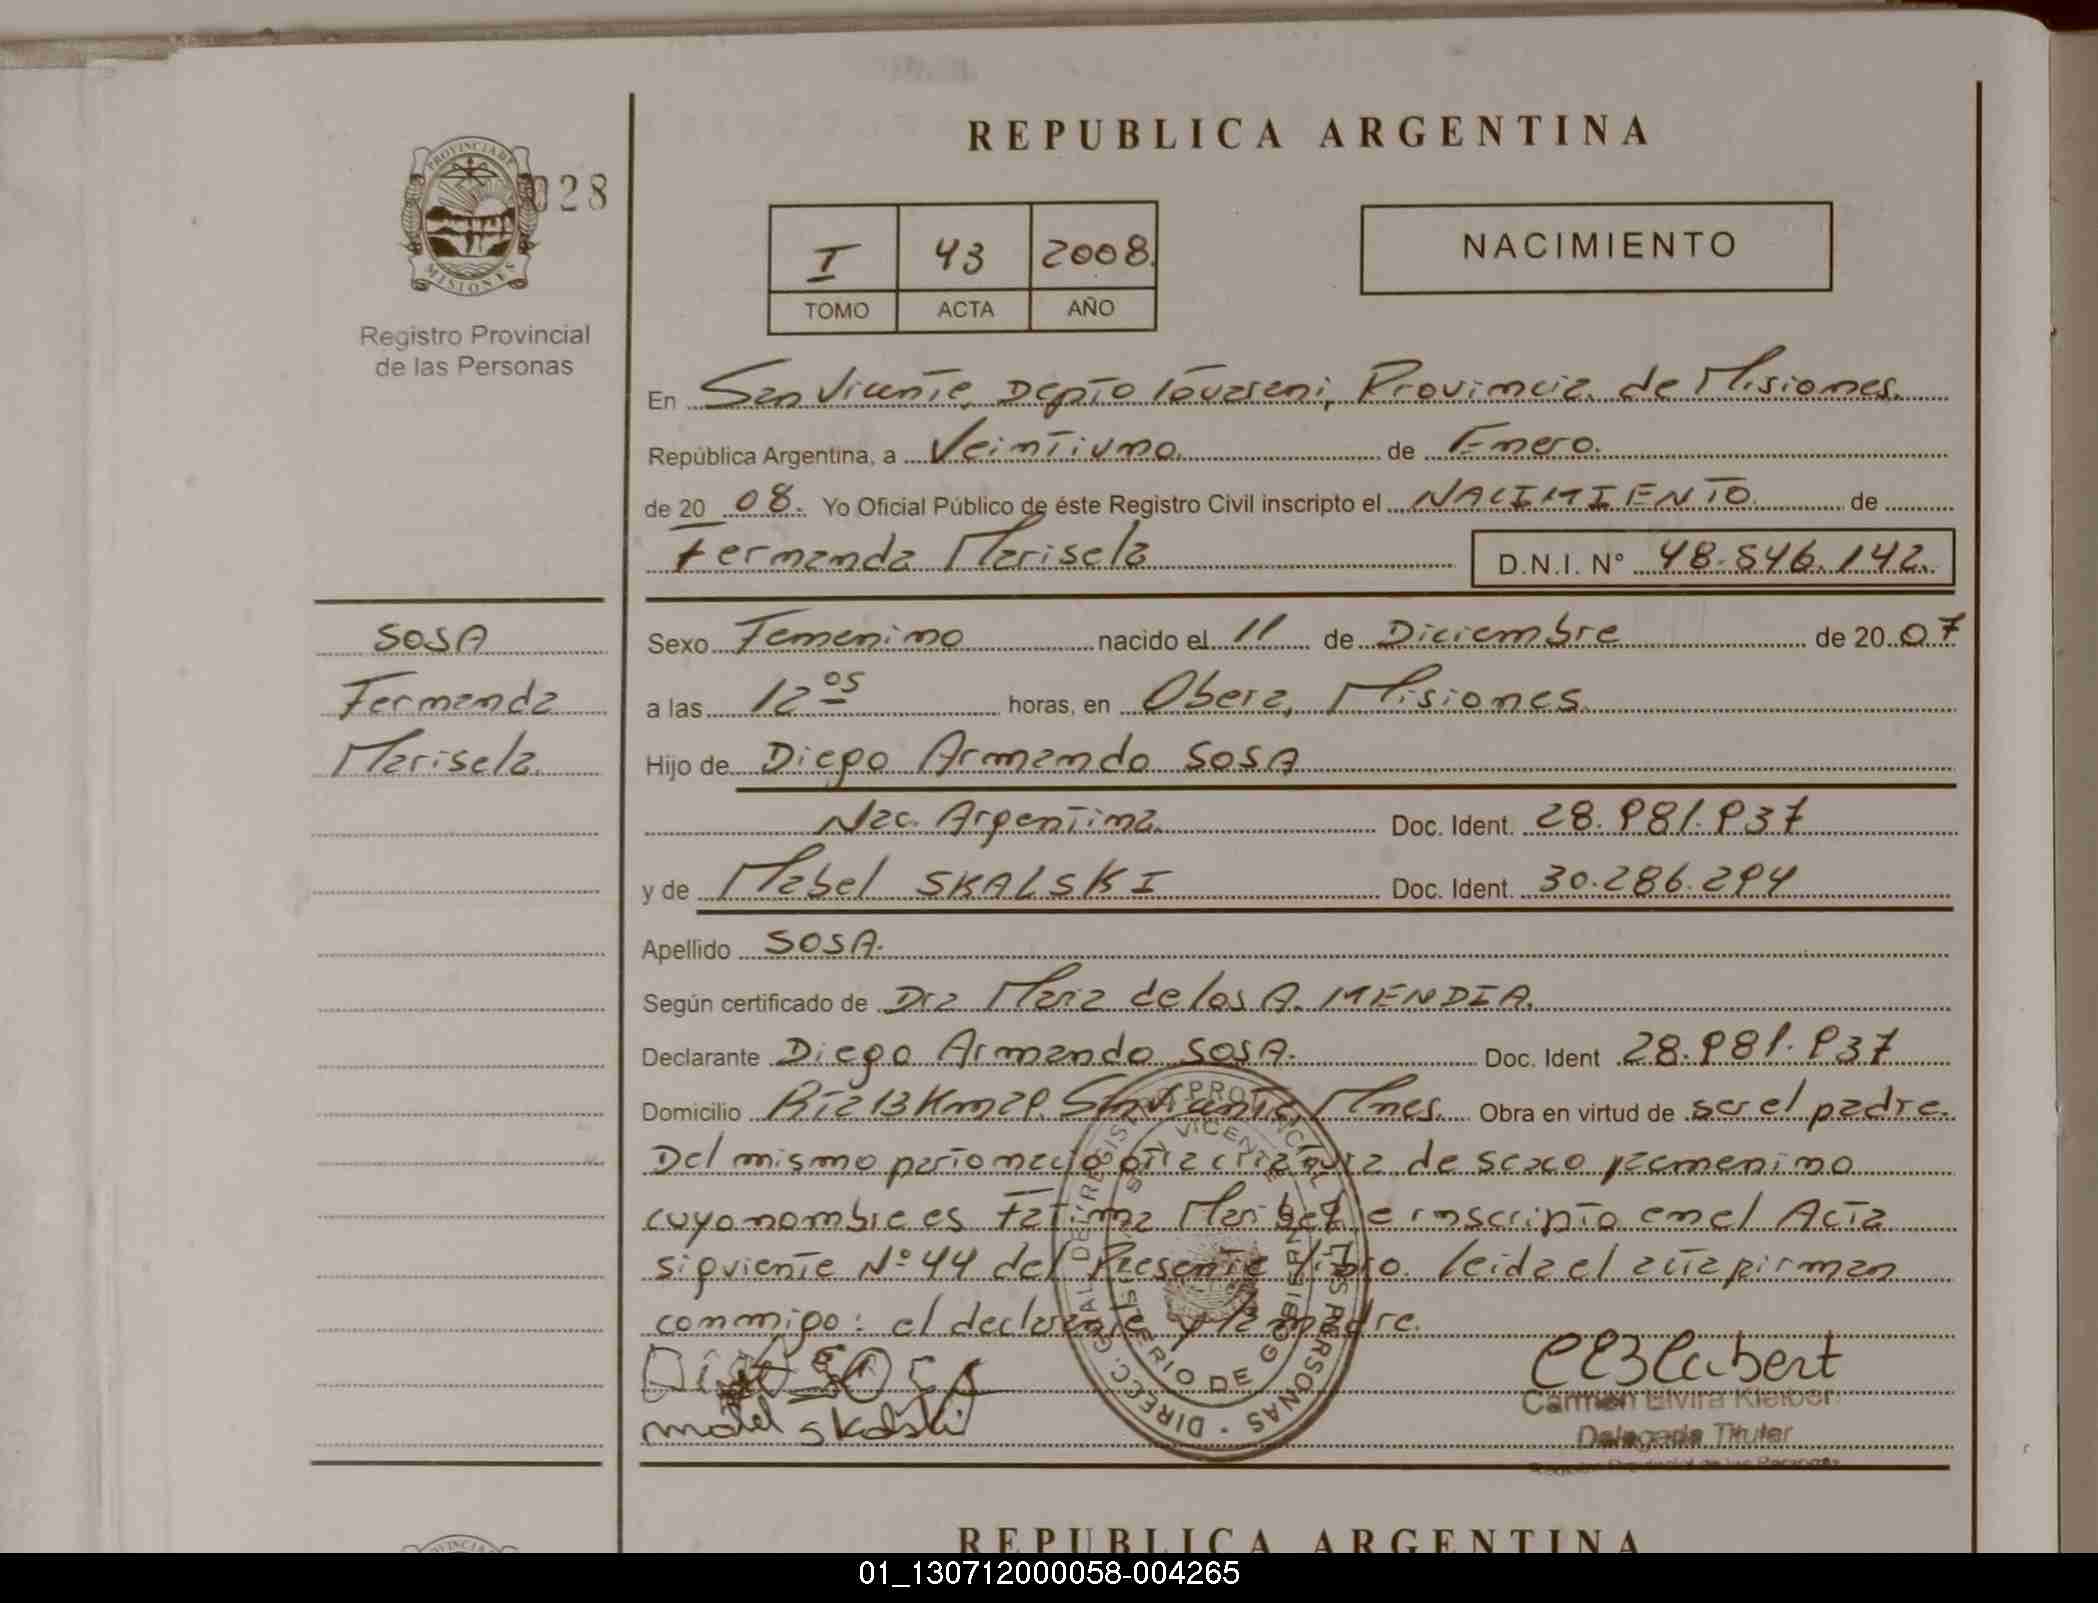 REPUBLICA ARGENTINA
PROVINCIA DE
MISIONES
028
Registro Provincial
de las Personas
I 43 2008.
TOMO ACTA AÑO
NACIMIENTO
En San Vicente, Depto Guarani, Provincia de Misiones.
República Argentina, a Veintiuno. de Enero.
de 20 08. Yo Oficial Público de éste Registro Civil inscripto el NACIMIENTO de
Fernanda Marisela D.N.I. Nº 48.546.142.
SOSA
Fernanda
Marisela.
Sexo Femenino nacido el 11 de Diciembre de 20 07
a las 12 05 horas, en Obera, Misiones.
Hijo de Diego Armando SOSA
Nac. Argentina. Doc. Ident. 28.981.937
y de Mabel SKALSKI Doc. Ident. 30.286.294
Apellido SOSA.
Según certificado de Dra Maria de los A. MENDIA.
Declarante Diego Armando SOSA. Doc. Ident 28.981.937
Domicilio Rta 13 Km 29. San Vicente, Mnes. Obra en virtud de ser el padre.
Del mismo parto nacio otra criatura de sexo femenino
cuyo nombre es Fatima Maribel e inscripto en el Acta
siguiente Nº 44 del Presente libro. leida el acta firman
conmigo: el declarante y la madre.
DIRECC. GRAL DE REGISTRO PROVINCIAL DE LAS PERSONAS
SAN VICENTE
MINISTERIO DE GOBIERNO
Diego SOSA
mabel skalski
Carmen Elvira Kleibert
Delegada Titular
Registro Provincial de las Personas
REPUBLICA ARGENTINA
01_130712000058-004265